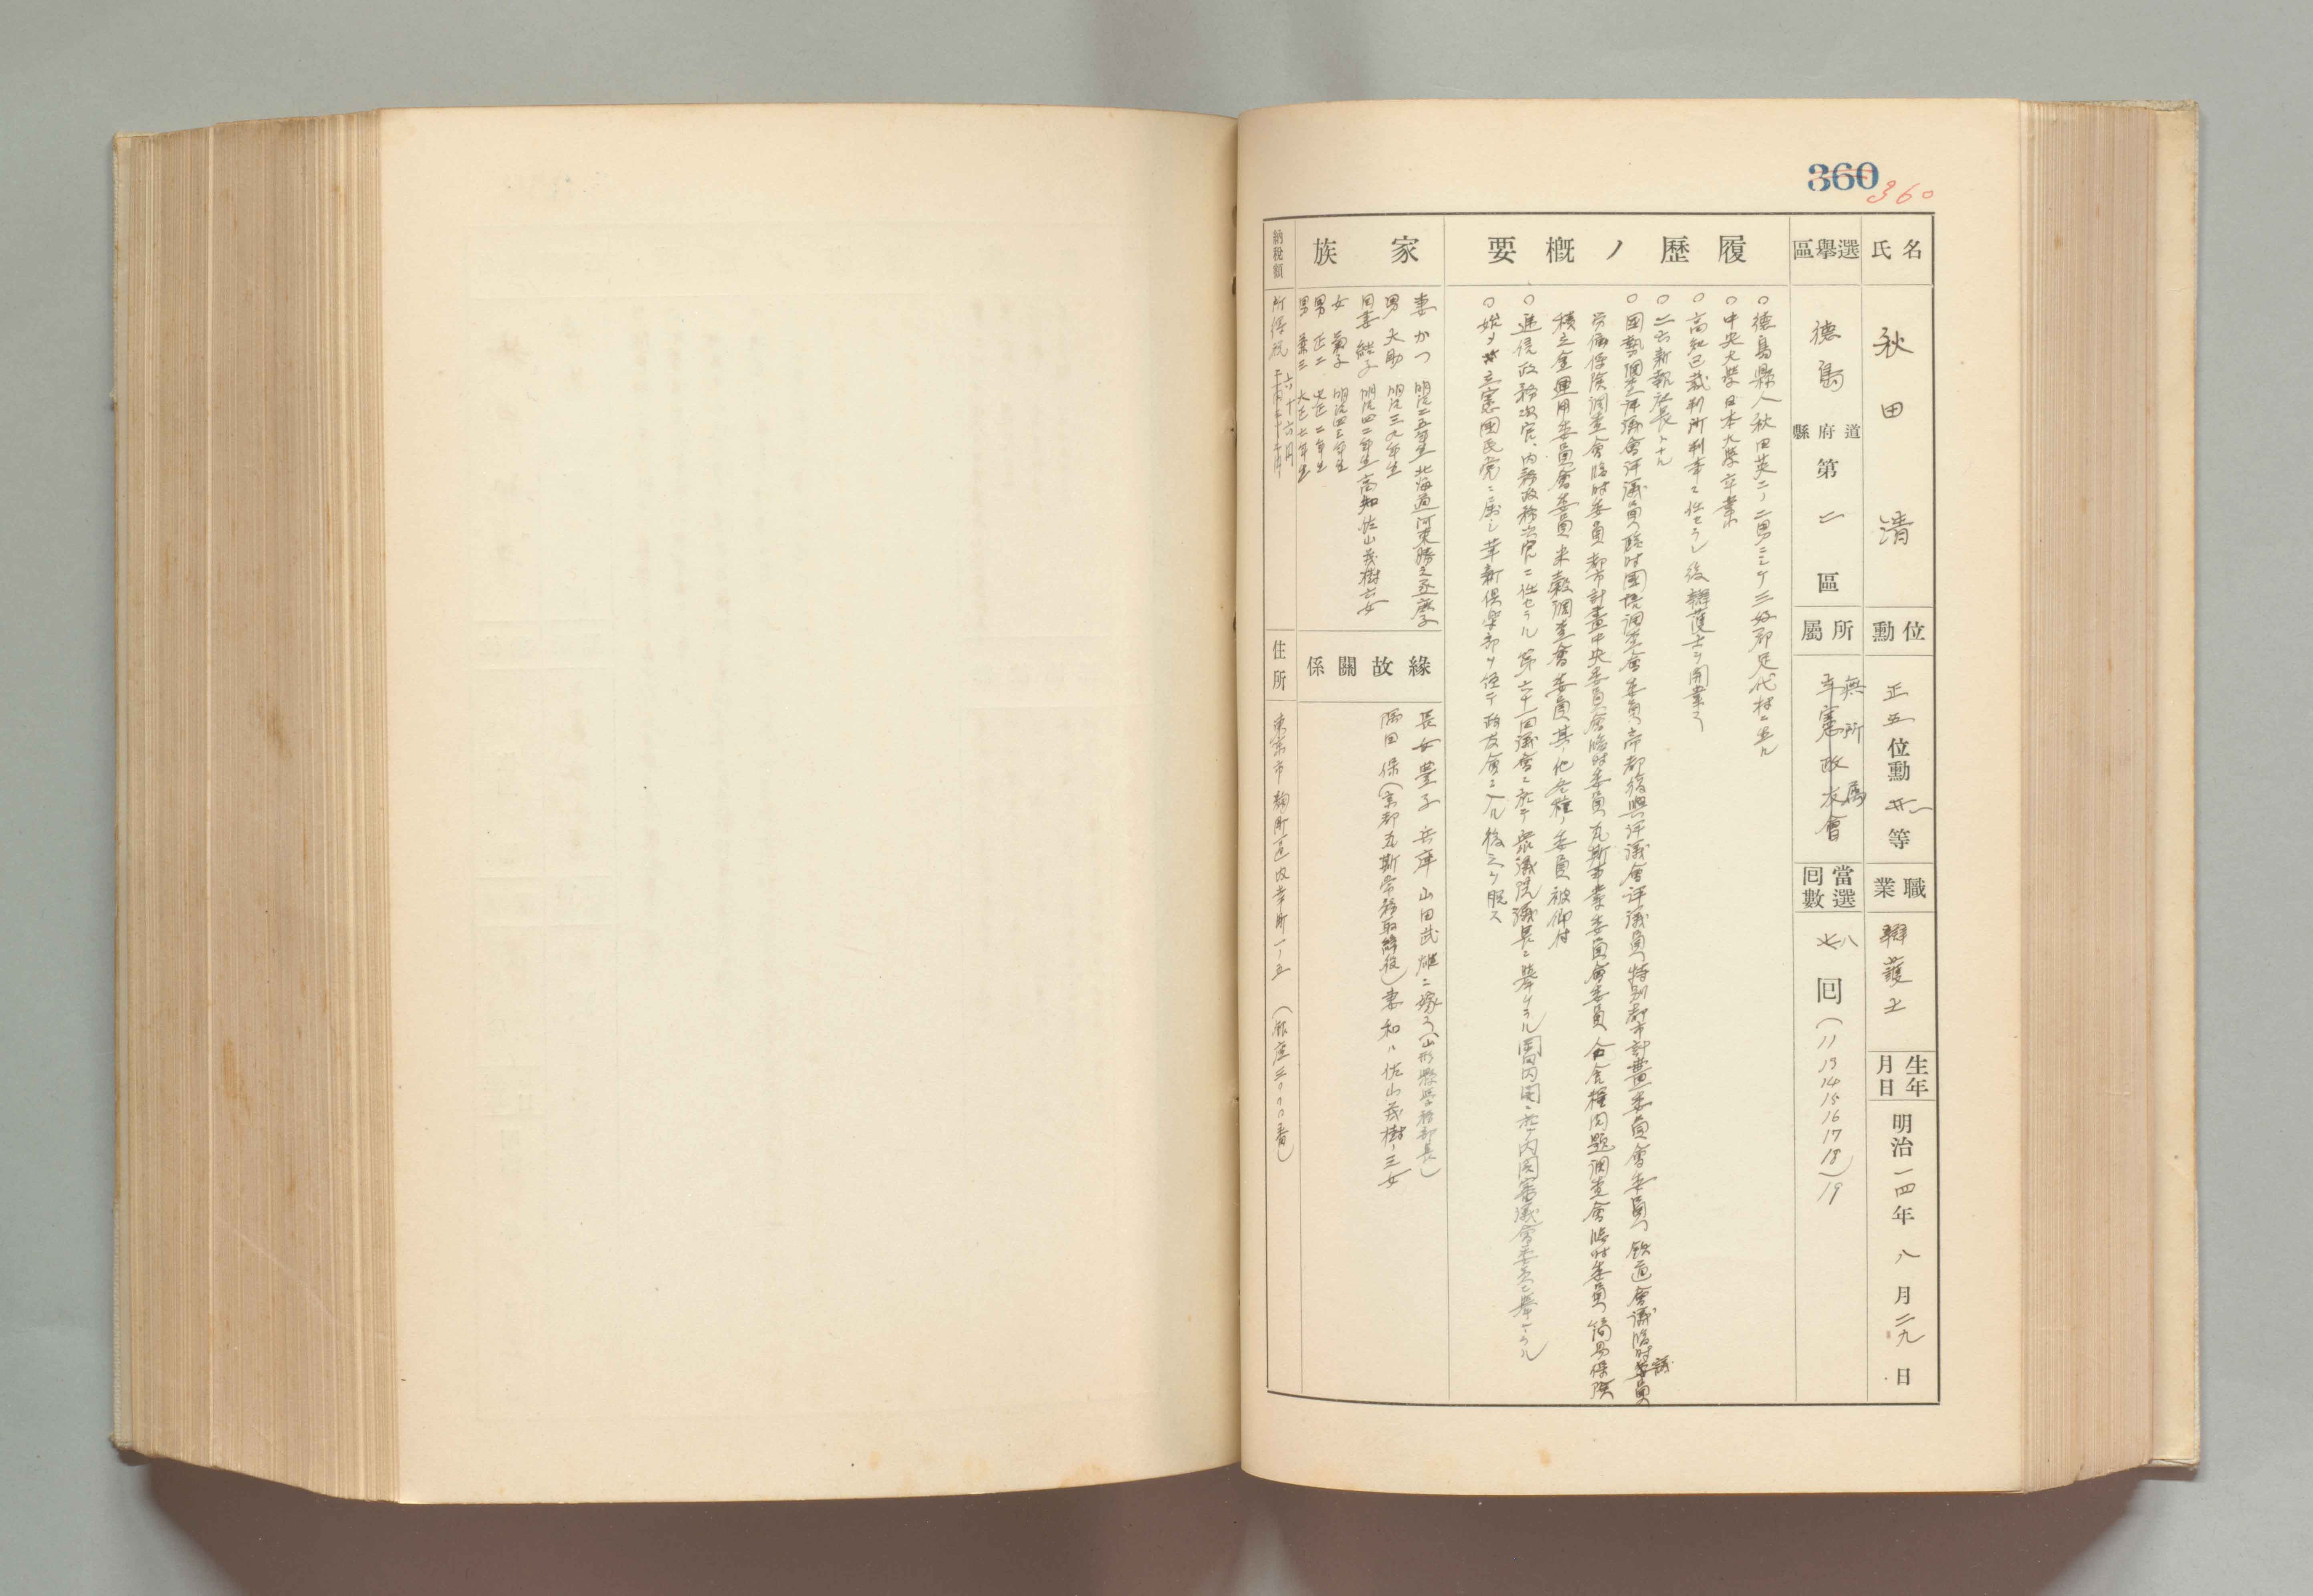 360
360
氏名
秋田清
位勲
正五位勲二等
職業
辯護士
生年月日
明治一四年八月二九日
選擧區
徳島 道府縣 第二區
所屬
立憲政友會
無所属
當選回數
七 八 回(11 13 14 15 16 17 18)19
履歷ノ概要
○徳島縣人秋田英二ノ二男ニシテ三好郡足代村ニ生ル
○中央大學日本大學卒業
○高知区裁判所判事ニ任セラレ後辯護士ヲ開業ス
○二六新報社長トナル
○国勢調査評議會評議員、臨時国語調査會委員、帝都復興評議會評議員、特別都市計畫委員會委員、鉄道會議臨時議員
労働保険調査會臨時委員、都市計畫中央委員會臨時委員、瓦斯事業委員會委員、問題調査會臨時委員、簡易保険
積立金運用委員會委員、米穀調査會委員、其ノ他各種ノ委員被仰付
○逓信政務次官、内務政務次官ニ任セラル 第六十一回議會ニ於テ衆議院議長ニ擧ケラル 内閣審議會委員ニ擧ケラル
○始メ立憲國民党ニ属シ革新倶楽部ヲ経テ政友會ニ入ル後之ヲ脱ス
家族
妻 かつ 明治二五年生 北海道河東勝之丞庶子
男 大助 明治三九年生
同妻 明治四二年生 高知佐山茂樹六女
女 菊子 明治四三年生
男 正二 大正二年生
男 兼三 大正七年生
緣故關係
長女豊子 兵庫山田武雄ニ嫁ス(山形縣警務部長)
隅田保(京都瓦斯常務取締役)妻和ハ佐山茂樹ノ三女
納稅額
所得税
六十六円
住所
東京市麹町區内幸町一ノ五 (銀座三〇〇〇番)